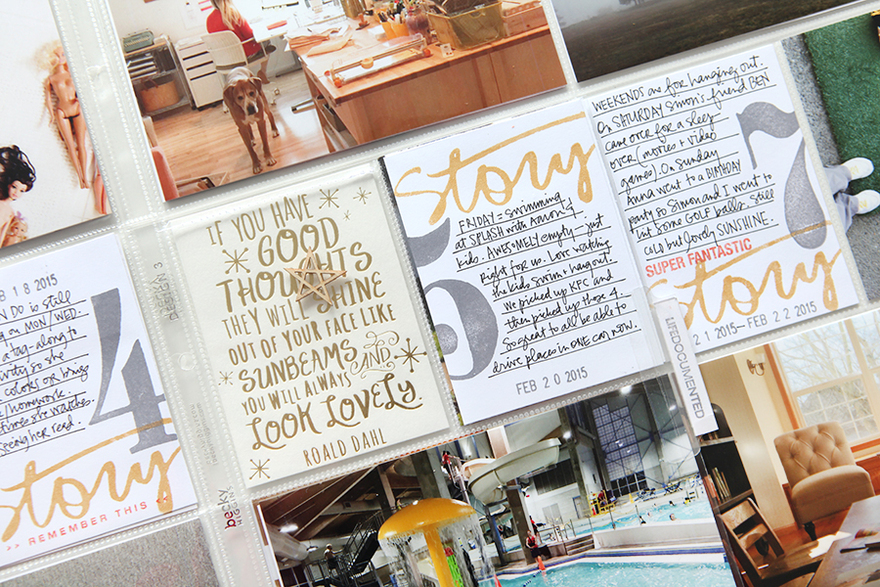 B 18 2015
DO is still
on MON/WED.
a tag-along to
so she
colors or bring
homework.
times she watches.
her read.
4
story
>> REMEMBER THIS <<
IF YOU HAVE
GOOD
THOUGHTS
THEY WILL SHINE
OUT OF YOUR FACE LIKE
SUNBEAMS AND
YOU WILL ALWAYS
LOOK LOVELY
ROALD DAHL
becky
story
FRIDAY = swimming
at SPLASH with Aaron +
kids. AWESOMELY empty - just
right for us. Love watching
the kids swim + hang out.
We picked up KFC and
then picked up those 4.
So great to all be able to
drive places in ONE car now.
5
FEB 20 2015
WEEKENDS are for hanging out.
On SATURDAY Simon's friend BEN
came over for a sleep
over (movies + video
games). On Sunday
Anna went to a BIRTHDAY
party so Simon and I went to
hit some GOLF balls. Still
COLD but lovely SUNSHINE.
7
SUPER FANTASTIC
story
21 2015 - FEB 22 2015
LIFEDOCUMENTED